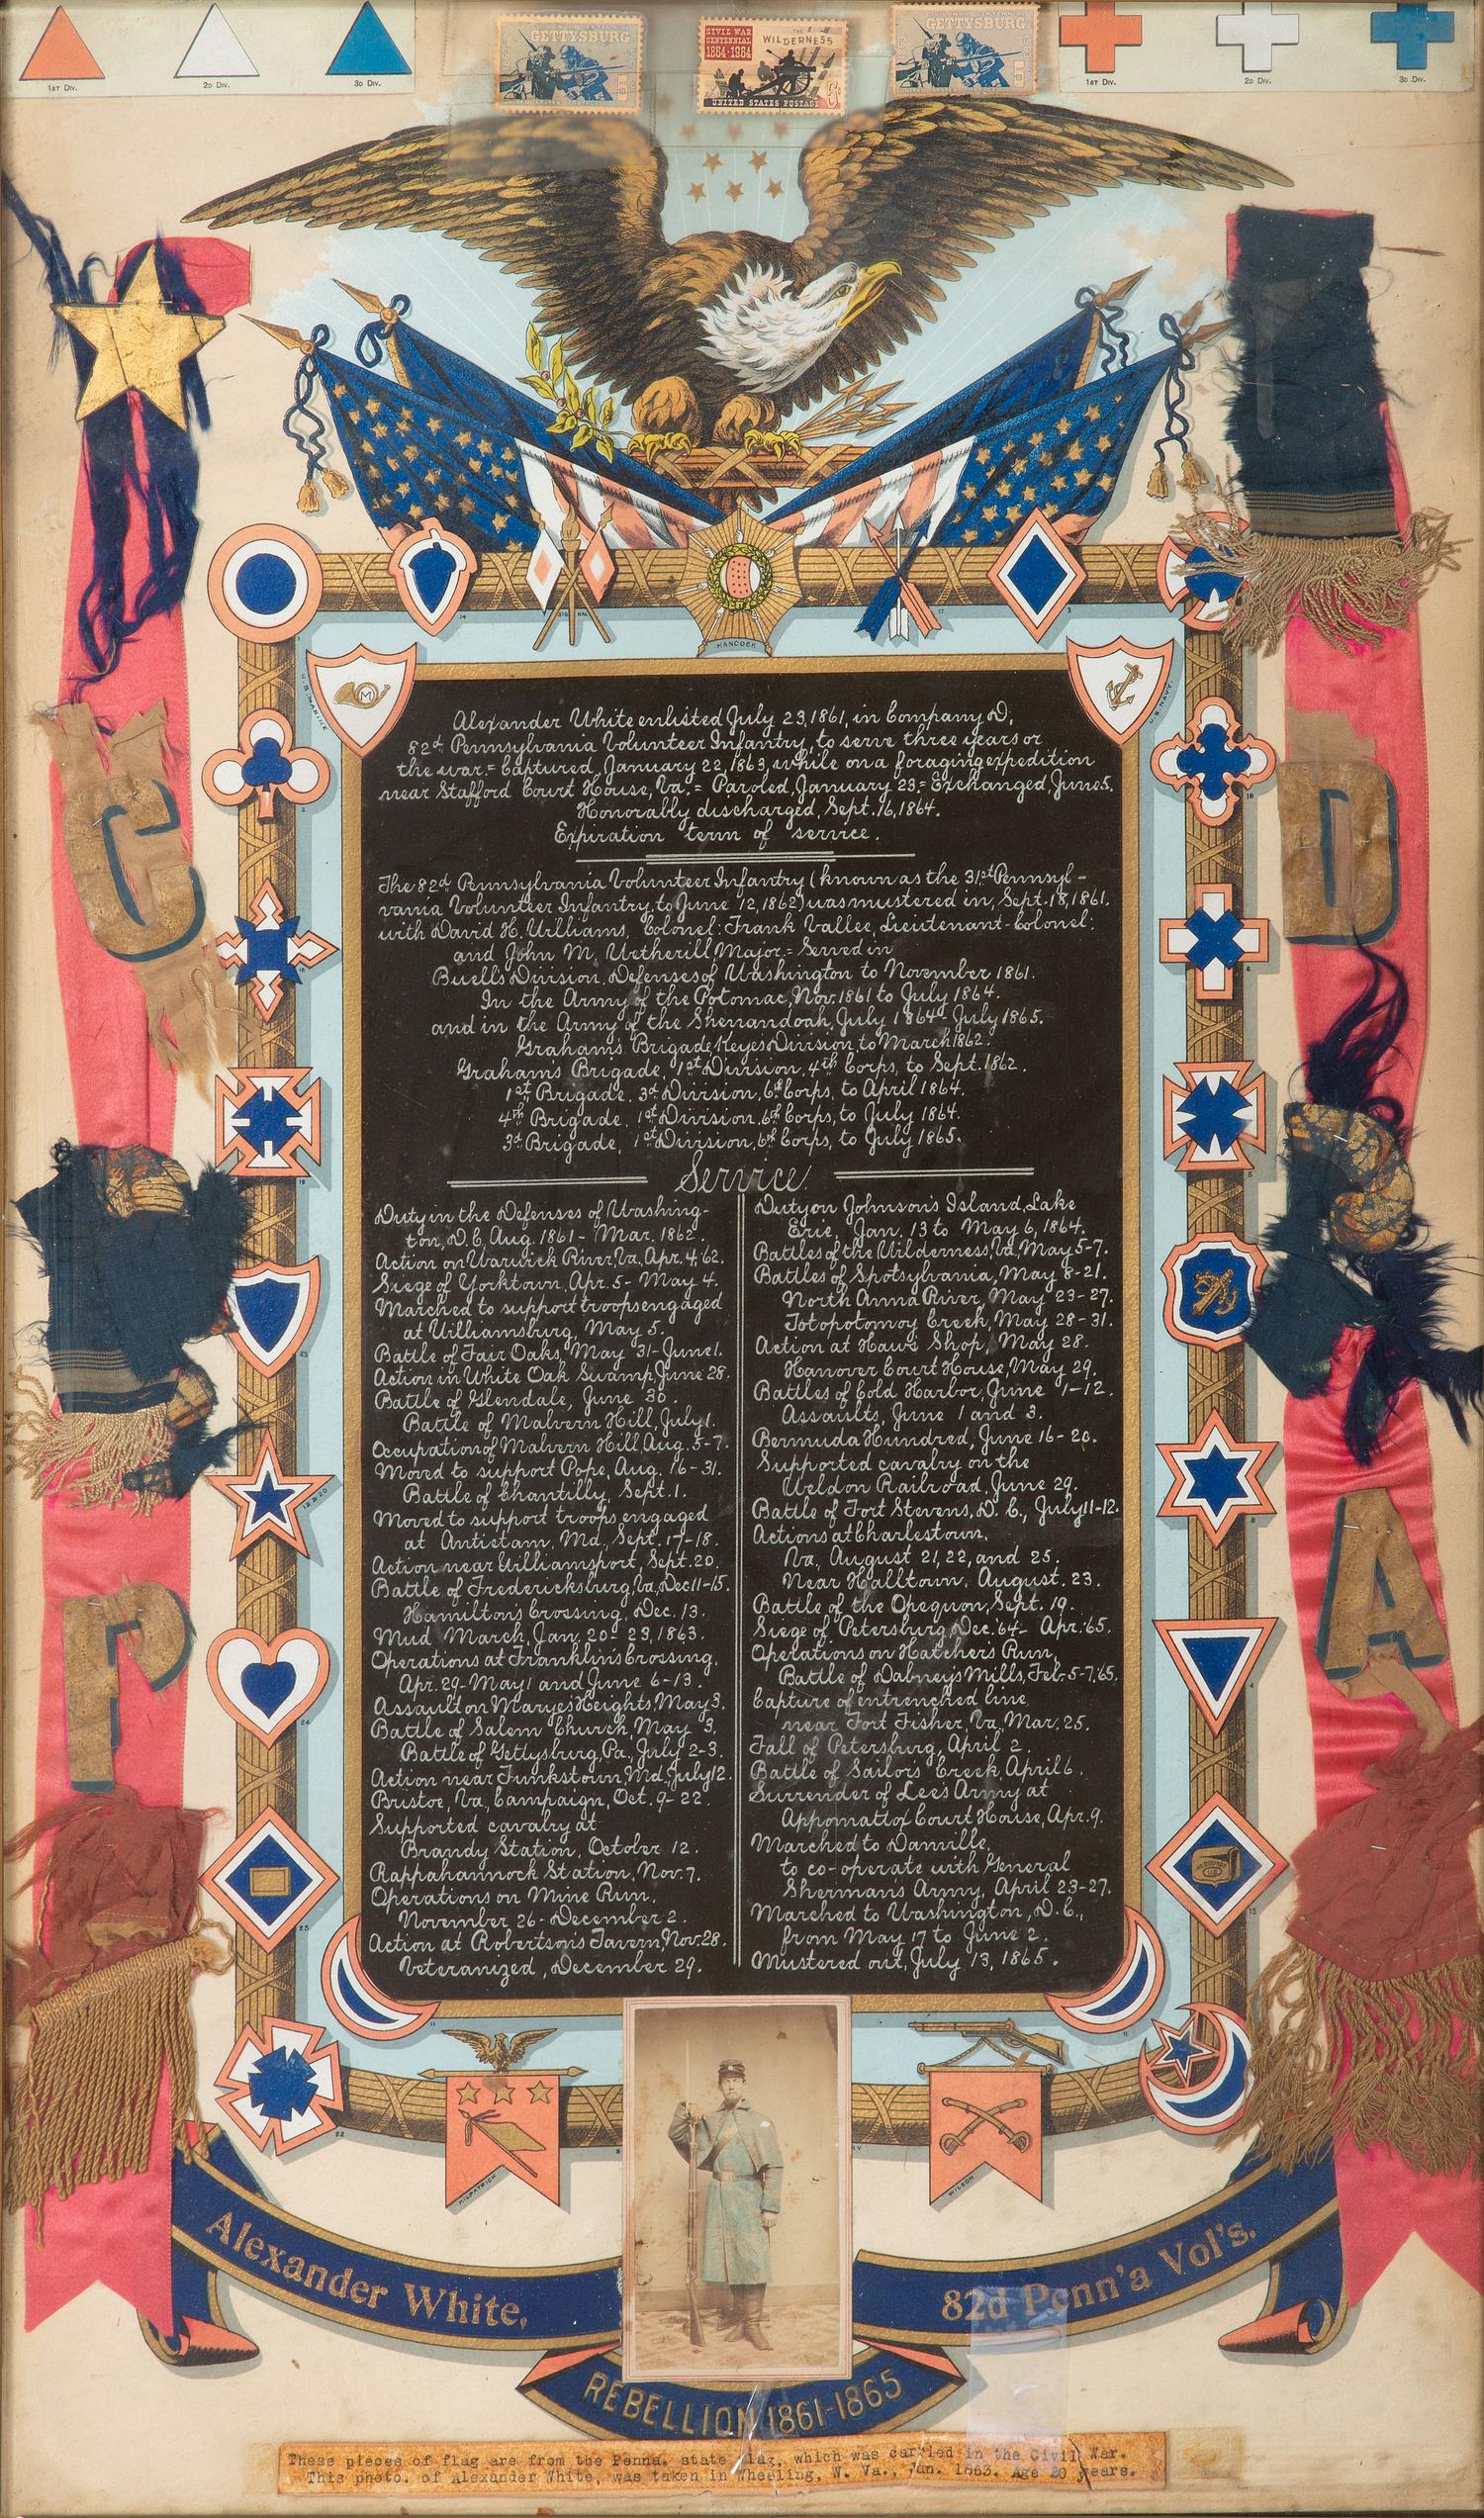 1ST DIV.
2D DIV.
3D DIV.
GETTYSBURG
CIVIL WAR
CENTENNIAL
1864-1964
THE
WILDERNESS
UNITED STATES POSTAGE
GETTYSBURG
1ST DIV.
2D DIV.
3D DIV.
HANCOCK
C
D
P
A
Alexander White enlisted July 23, 1861, in Company D,
82d Pennsylvania Volunteer Infantry, to serve three years or
the war = Captured January 22, 1863, while on a foraging expedition
near Stafford Court House, Va. = Paroled, January 23 = Exchanged, June 5.
Honorably discharged, Sept. 16, 1864.
Expiration term of service.
The 82d Pennsylvania Volunteer Infantry (known as the 31st Pennsyl-
vania Volunteer Infantry, to June 12, 1862) was mustered in, Sept. 18, 1861.
with David H. Williams, Colonel: Frank Vallee, Lieutenant-Colonel:
and John M. Wetherill, Major = Served in
Buells Division, Defenses of Washington to November 1861.
In the Army of the Potomac, Nov. 1861 to July 1864.
and in the Army of the Shenandoah, July 1864 - July 1865.
Graham's Brigade, Keyes Division, to March 1862.
Graham's Brigade, 1st Division, 4th Corps, to Sept. 1862.
1st Brigade, 3d Division, 6th Corps, to April 1864.
4th Brigade, 1st Division, 6th Corps, to July 1864.
3d Brigade, 1st Division, 6th Corps, to July 1865.
Service
Duty in the Defenses of Washing-
ton, D.C. Aug. 1861 - Mar. 1862.
Action on Warwick River, Va., Apr. 4, '62.
Siege of Yorktown, Apr. 5 - May 4.
Marched to support troops engaged
at Williamsburg, May 5.
Battle of Fair Oaks, May 31 - June 1.
Action in White Oak Swamp, June 28.
Battle of Glendale, June 30.
Battle of Malvern Hill, July 1.
Occupation of Malvern Hill, Aug. 5-7.
Moved to support Pope, Aug. 16-31.
Battle of Chantilly, Sept. 1.
Moved to support troops engaged
at Antietam, Md., Sept. 17-18.
Action near Williamsport, Sept. 20.
Battle of Fredericksburg, Va., Dec 11-15.
Hamilton's Crossing, Dec. 13.
Mud March, Jan. 20-23, 1863.
Operations at Franklin's Crossing,
Apr. 29 - May 1 and June 6-13.
Assault on Maryes Heights, May 3.
Battle of Salem Church, May 3.
Battle of Gettysburg, Pa., July 2-3.
Action near Funkstown, Md., July 12.
Bristoe, Va., Campaign, Oct. 9-22.
Supported cavalry at
Brandy Station, October 12.
Rappahannock Station, Nov. 7.
Operations on Mine Run,
November 26 - December 2.
Action at Robertson's Tavern, Nov. 28.
Veteranized, December 29.
Duty on Johnson's Island, Lake
Erie, Jan. 13 to May 6, 1864.
Battles of the Wilderness, Va., May 5-7.
Battles of Spotsylvania, May 8-21.
North Anna River, May 23-27.
Totopotomoy Creek, May 28-31.
Action at Haws Shop, May 28.
Hanover Court House, May 29.
Battles of Cold Harbor, June 1-12.
Assaults, June 1 and 3.
Bermuda Hundred, June 16-20.
Supported cavalry on the
Weldon Railroad, June 29.
Battle of Fort Stevens, D. C., July 11-12.
Actions at Charlestown,
Va, August 21, 22, and 25.
Near Halltown, August. 23.
Battle of the Opequon, Sept. 19.
Siege of Petersburg, Dec. '64 - Apr. '65.
Operations on Hatchers Run,
Battle of Dabney's Mills, Feb. 5-7, '65.
Capture of entrenched line,
near Fort Fisher, Va, Mar. 25.
Fall of Petersburg, April 2.
Battle of Sailor's Creek April 6.
Surrender of Lees Army at
Appomattox Court House, Apr. 9.
Marched to Danville,
to co-operate with General
Sherman's Army, April 23-27.
Marched to Washington, D.C.,
from May 17 to June 2.
Mustered out, July 13, 1865.
KILPATRICK
WILSON
Alexander White,
82d Penn'a Vol's.
REBELLION 1861-1865
These pieces of flag are from the Penna. state flag, which was carried in the Civil War.
This photo. of Alexander White, was taken in Wheeling, W. Va., Jan. 1863. Age 20 years.